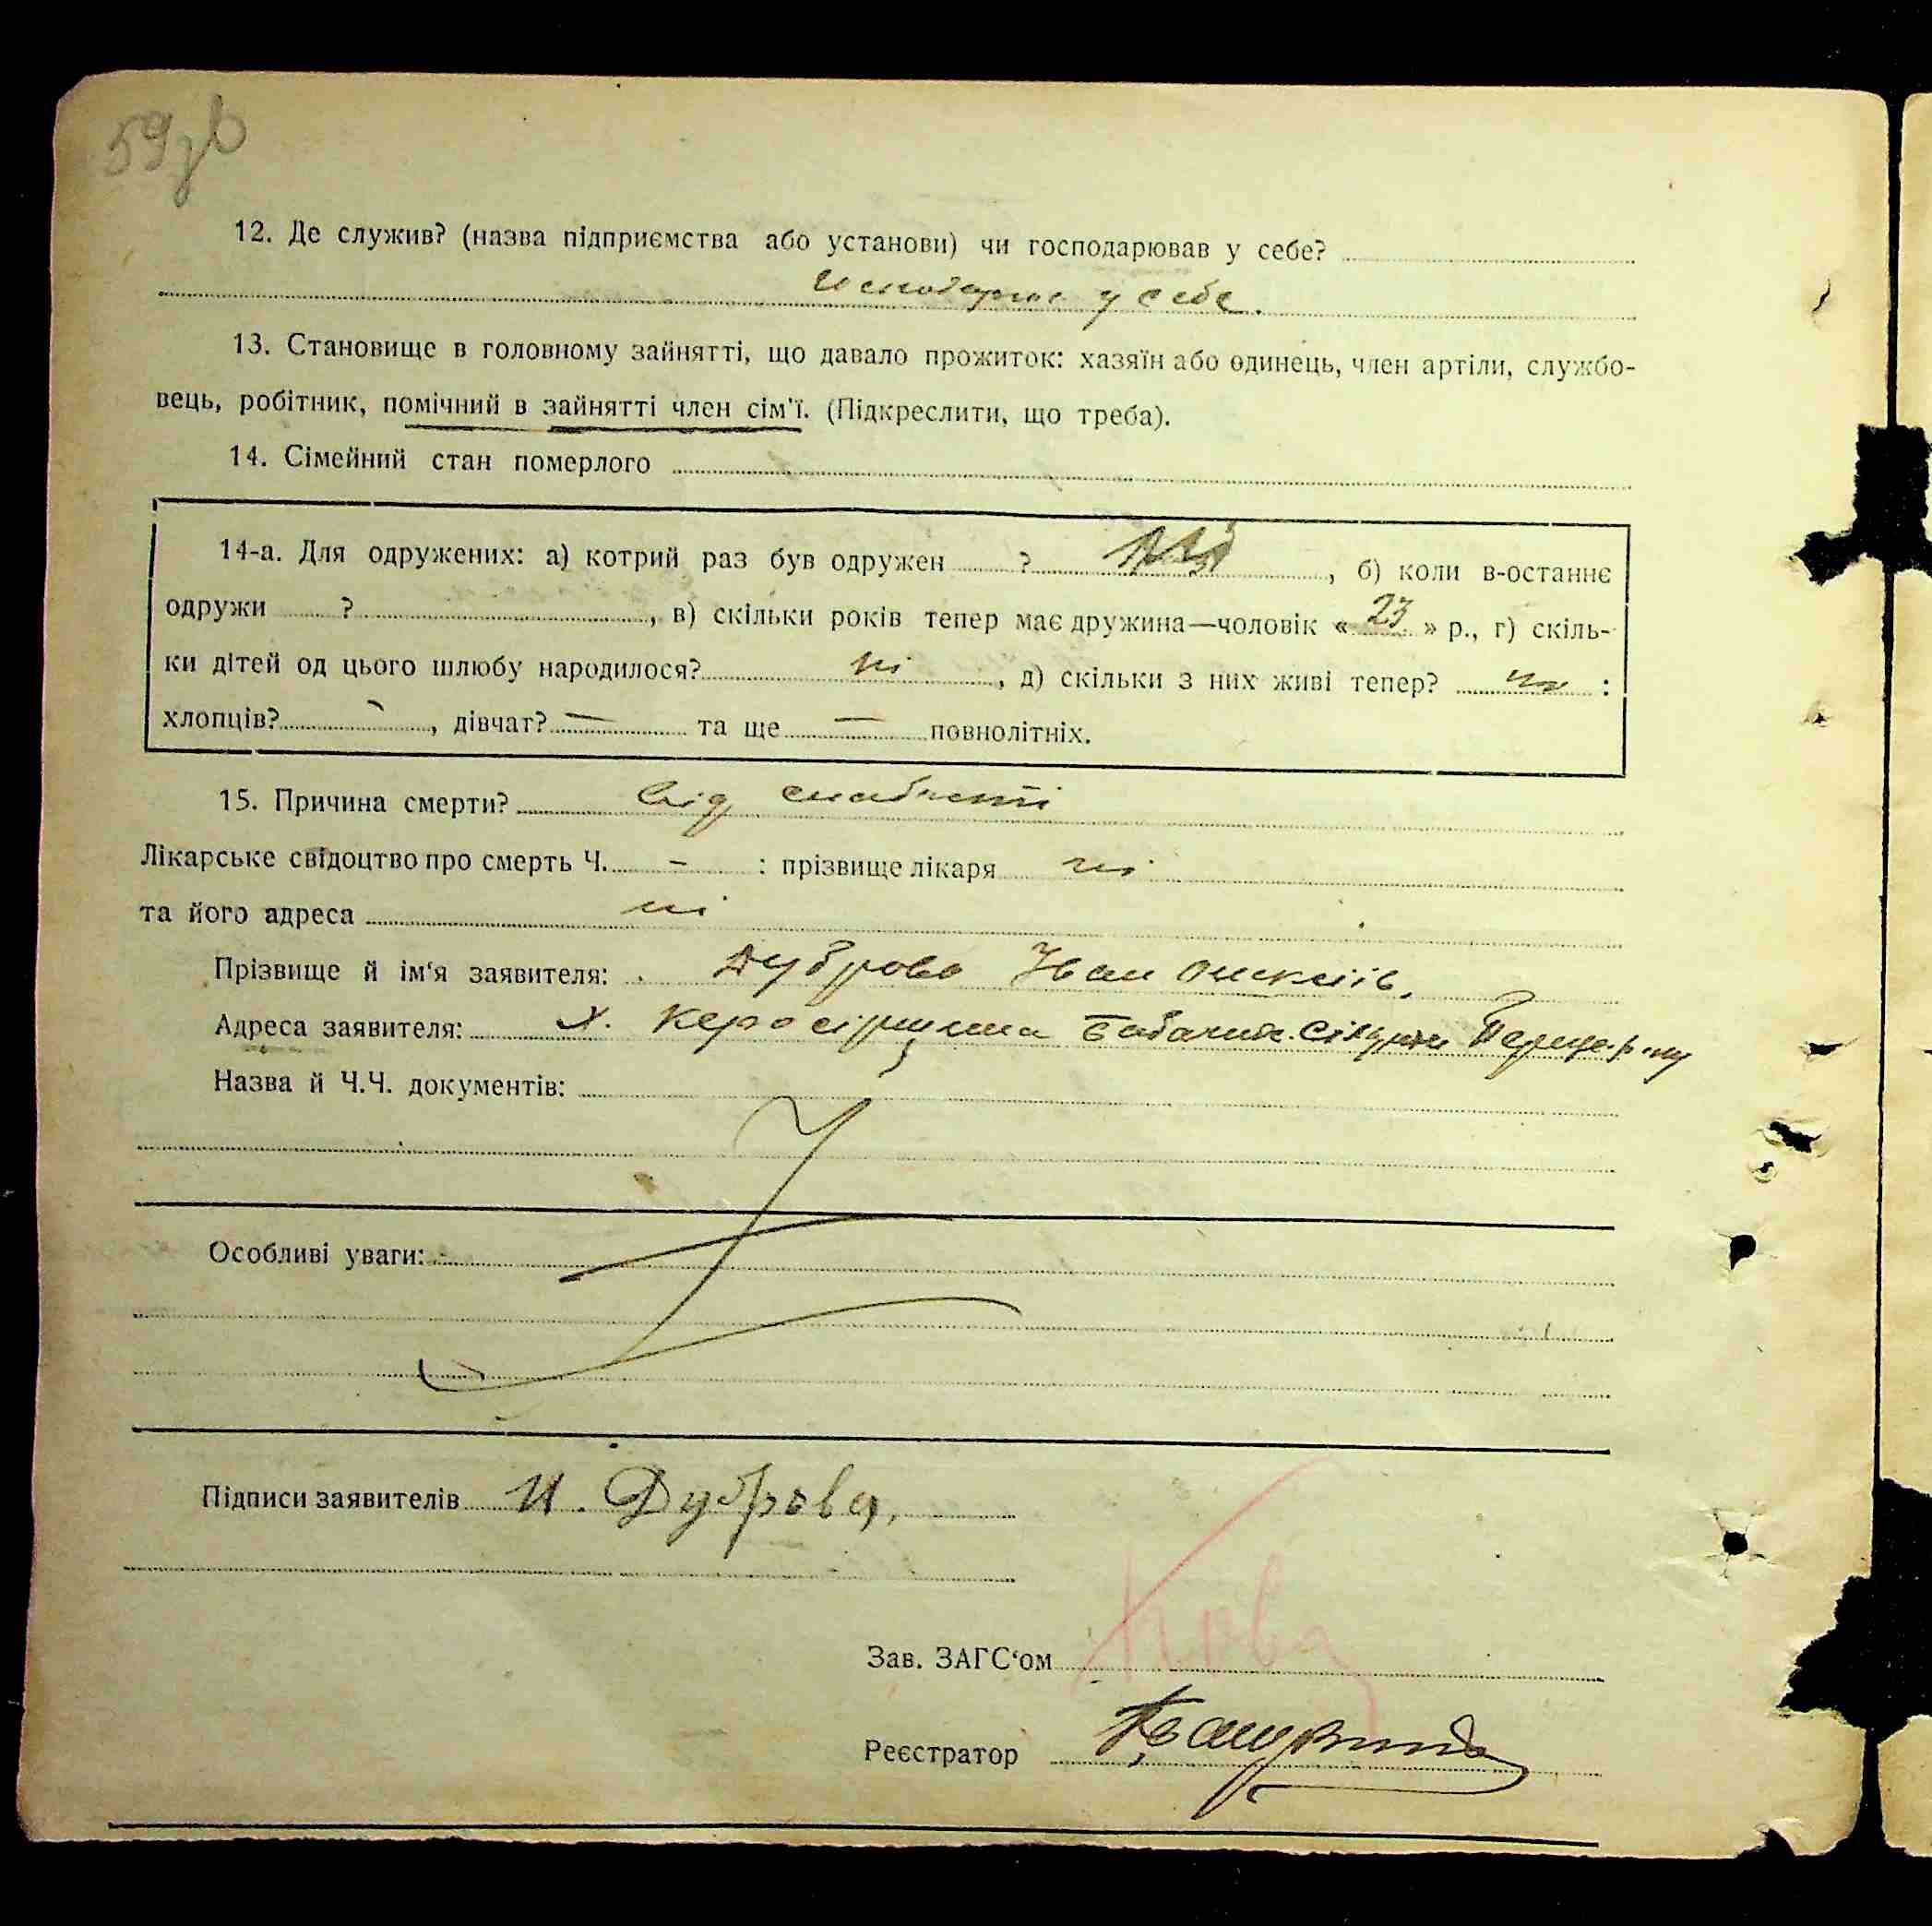 59зв
12. Де служив? (назва підприємства або установи) чи господарював у себе?
у себе.
13. Становище в головному зайнятті, що давало прожиток: хазяїн або одинець, член артіли, службо-
вець, робітник, помічний в зайнятті член сім'ї. (Підкреслити, що треба).
14. Сімейний стан померлого
14-а. Для одружених: а) котрий раз був одружен ? , б) коли в-останнє
одружи ? , в) скільки років тепер має дружина—чоловік « 23 » р., г) скіль-
ки дітей од цього шлюбу народилося? ні , д) скільки з них живі тепер? ні :
хлопців? — , дівчат? — та ще — повнолітніх.
15. Причина смерти? Від слабости
Лікарське свідоцтво про смерть Ч. - : прізвище лікаря ні
та його адреса ні
Прізвище й ім'я заявителя: Дуброва Іван Олексіїв.
Адреса заявителя: х.
Назва й Ч.Ч. документів:
Особливі уваги:
Підписи заявителів И. Дуброва,
Зав. ЗАГС'ом
Реєстратор